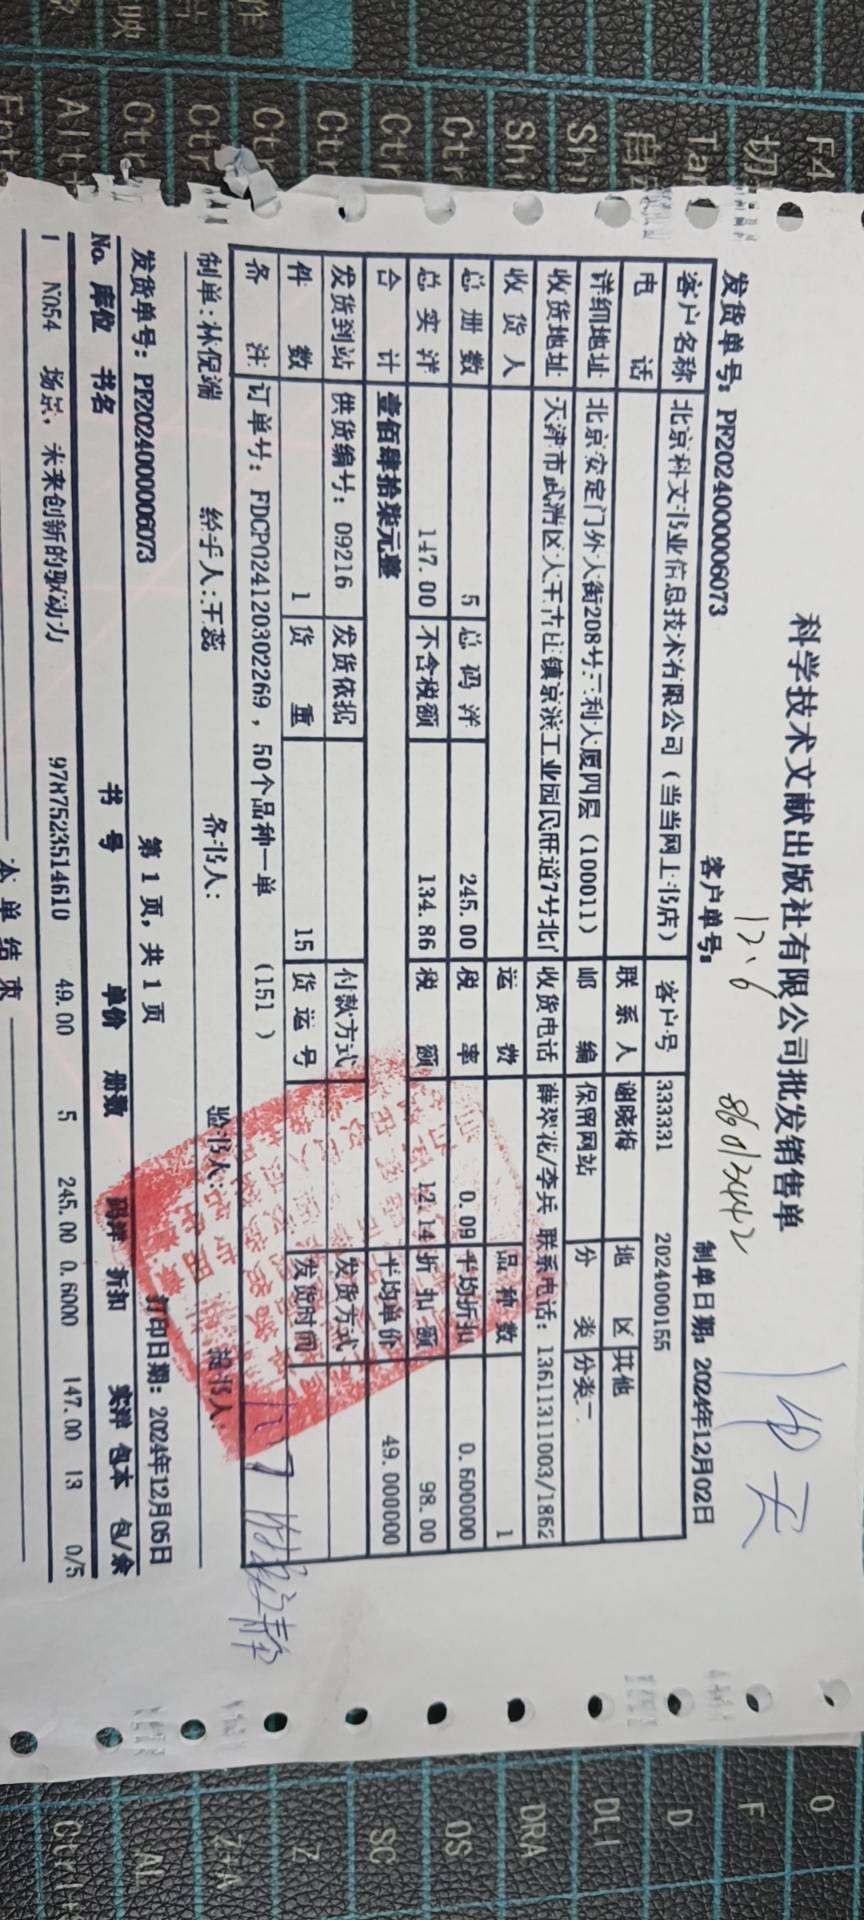 科学技术文献出版社有限公司批发销售单
12.6
86013442
伯天
发货单号：PF2024000006073 客户单号： 制单日期：2024年12月02日
客户名称 北京科文书业信息技术有限公司（当当网上书店） 客户号 333331 2024000155
电话 联系人 谢晓梅 地区 其他
详细地址 北京安定门外大街208号三利大厦四层（100011） 邮编 保留网站 分类 分类一
收货地址 天津市武清区大王古庄镇京滨工业园民旺道7号北门 收货电话 薛翠花/李兵 联系电话：13611311003/1862
收货人 运费 品种数 1
总册数 5 总码洋 245.00 税率 0.09 平均折扣 0.600000
总实洋 147.00 不含税额 134.86 税额 12.14 折扣额 98.00
合计 壹佰肆拾柒元整 平均单价 49.000000
发货到站 供货编号：09216 发货依据 付款方式 发货方式
件数 1 货重 15 货运号 发货时间
备注 订单号：FDCP024120302269，50个品种一单 （151 ）
制单：林倪端 经手人：王蕊 备书人： 验书人： 提书人：
发货单号：PF2024000006073 第 1 页，共 1 页 打印日期：2024年12月05日
No. 库位 书名 书号 单价 册数 码洋 折扣 实洋 包本 包/余
1 N054 场景，未来创新的驱动力 9787523514610 49.00 5 245.00 0.6000 147.00 13 0/5
本单结束
F4
Ctr
Ctr
Ctr
Ctr
Ctr
Ctr
O
F
D
DLI
DRA
OS
SC
Z
Z+A
AL